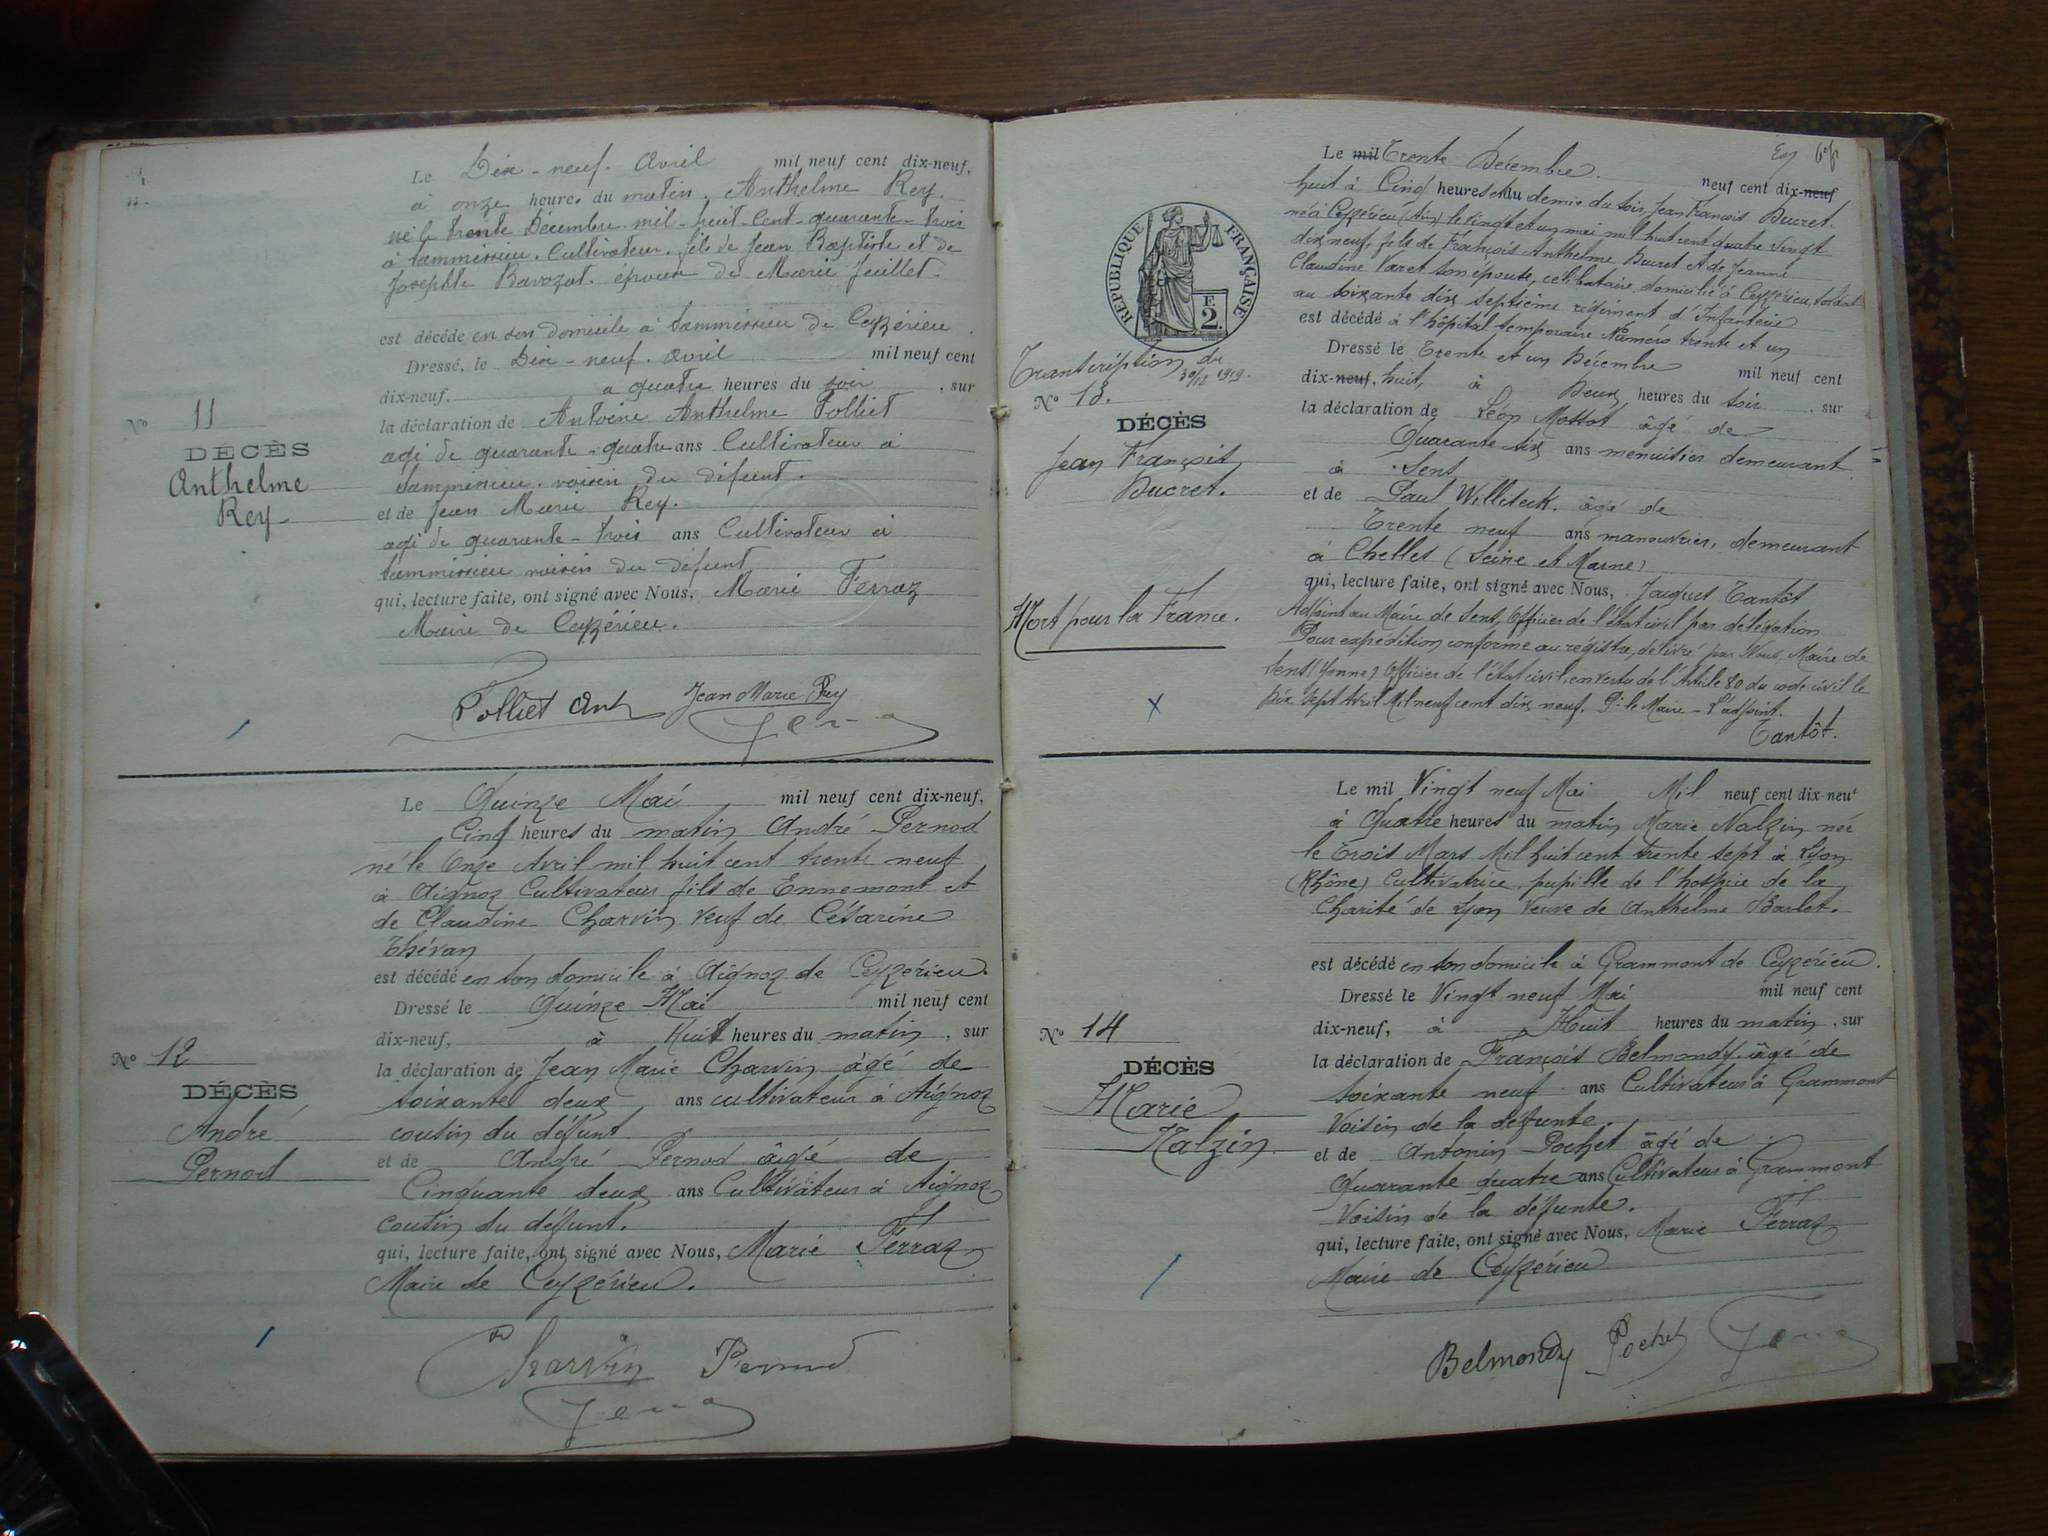 Le Dix-neuf Avril mil neuf cent dix-neuf,
à onze heures du matin. Anthelme Rey.
né le trente Décembre mil-huit-cent-quarante-trois
à Sammissieu. Cultivateur. fils de Jean Baptiste et de
Josephte Bavozat. époux de Marie Juillet.
est décédé en son domicile à Sammissieu de Ceyzérieu.
Dressé, le Dix-neuf. Avril mil neuf cent
dix-neuf. a quatre heures du soir, sur
la déclaration de Antoine Anthelme Polliet
agé de quarante-quatre ans Cultivateur à
Sammissieu. voisin du défunt.
et de Jean Marie Rey.
agé de quarante-trois ans Cultivateur à
Sammissieu voisin du défunt
qui, lecture faite, ont signé avec Nous, Marie Ferraz
Maire de Ceyzérieu.
Polliet Ant Jean Marie Rey
Ferraz
No 11
DÉCÈS
Anthelme
Rey
Le Quinze Mai mil neuf cent dix-neuf,
Cinq heures du matin André Pernod
né le Onze Avril mil huit cent trente neuf
à Aignoz Cultivateur fils de Ennemont et
de Claudine Charvin Veuf de Césarine
Thévan
est décédé en son domicile à Aignoz de Ceyzérieu.
Dressé le Quinze Mai mil neuf cent
dix-neuf, à Huit heures du matin, sur
la déclaration de Jean Marie Charvin âgé de
soixante deux ans cultivateur à Aignoz
cousin du défunt
et de André Pernod âgé de
Cinquante deux ans Cultivateur à Aignoz
cousin du défunt.
qui, lecture faite, ont signé avec Nous, Marie Ferraz
Maire de Ceyzérieu.
Charvin Pernod
Ferraz
No 12
DÉCÈS
André
Pernod
Le mil Trente Décembre. neuf cent dix-neuf
huit à Cinq heures et du demie du soir, Jean François Ducret.
né à Ceyzérieu (Ain) le vingt et un mai mil huit cent quatre vingt
dix neuf, fils de François Anthelme Ducret et de Jeanne
Claudine Varet son épouse, célibataire domicilié à Ceyzérieu, soldat
au soixante dix septième régiment d'Infanterie
est décédé à l'hôpital temporaire Numéro trente et un
Dressé le Trente et un Décembre mil neuf cent
dix-neuf, huit, à Deux heures du soir, sur
la déclaration de Léon Mottot âgé de
Quarante six ans menuisier demeurant
à Sens
et de Paul Willeteck. âgé de
Trente neuf ans manouvrier, demeurant
à Chelles (Seine et Marne)
qui, lecture faite, ont signé avec Nous, Jauguet Tantôt
Adjoint au Maire de Sens, Officier de l'état civil par délégation
Pour expédition conforme au régistre, délivré par Nous, Maire de
Sens (Yonne) Officier de l'état civil, en vertu de l'Article 80 du code civil le
Dix sept Avril Mil neuf cent dix neuf. Pr le Maire - l'adjoint.
Tantôt.
RÉPUBLIQUE FRANÇAISE
F.
2.
Transcription du
30/12 1919.
No 13.
DÉCÈS
Jean François
Ducret.
Mort pour la France.
Le mil Vingt neuf Mai Mil neuf cent dix-neuf
à Quatre heures du matin Marie Nalzin née
le Trois Mars Mil huit cent trente sept à Lyon
(Rhône) Cultivatrice, pupille de l'hospice de la
Charité de Lyon Veuve de Anthelme Barlet.
est décédé en son domicile à Grammont de Ceyzérieu.
Dressé le Vingt neuf Mai mil neuf cent
dix-neuf, à Huit heures du matin, sur
la déclaration de François Belmondy âgé de
soixante neuf ans Cultivateur à Grammont
Voisin de la défunte.
et de Antonin Pochet âgé de
Quarante quatre ans Cultivateur à Grammont
Voisin de la défunte.
qui, lecture faite, ont signé avec Nous, Marie Ferraz
Maire de Ceyzérieu
Belmondy Pochet Ferraz
No 14
DÉCÈS
Marie
Nalzin